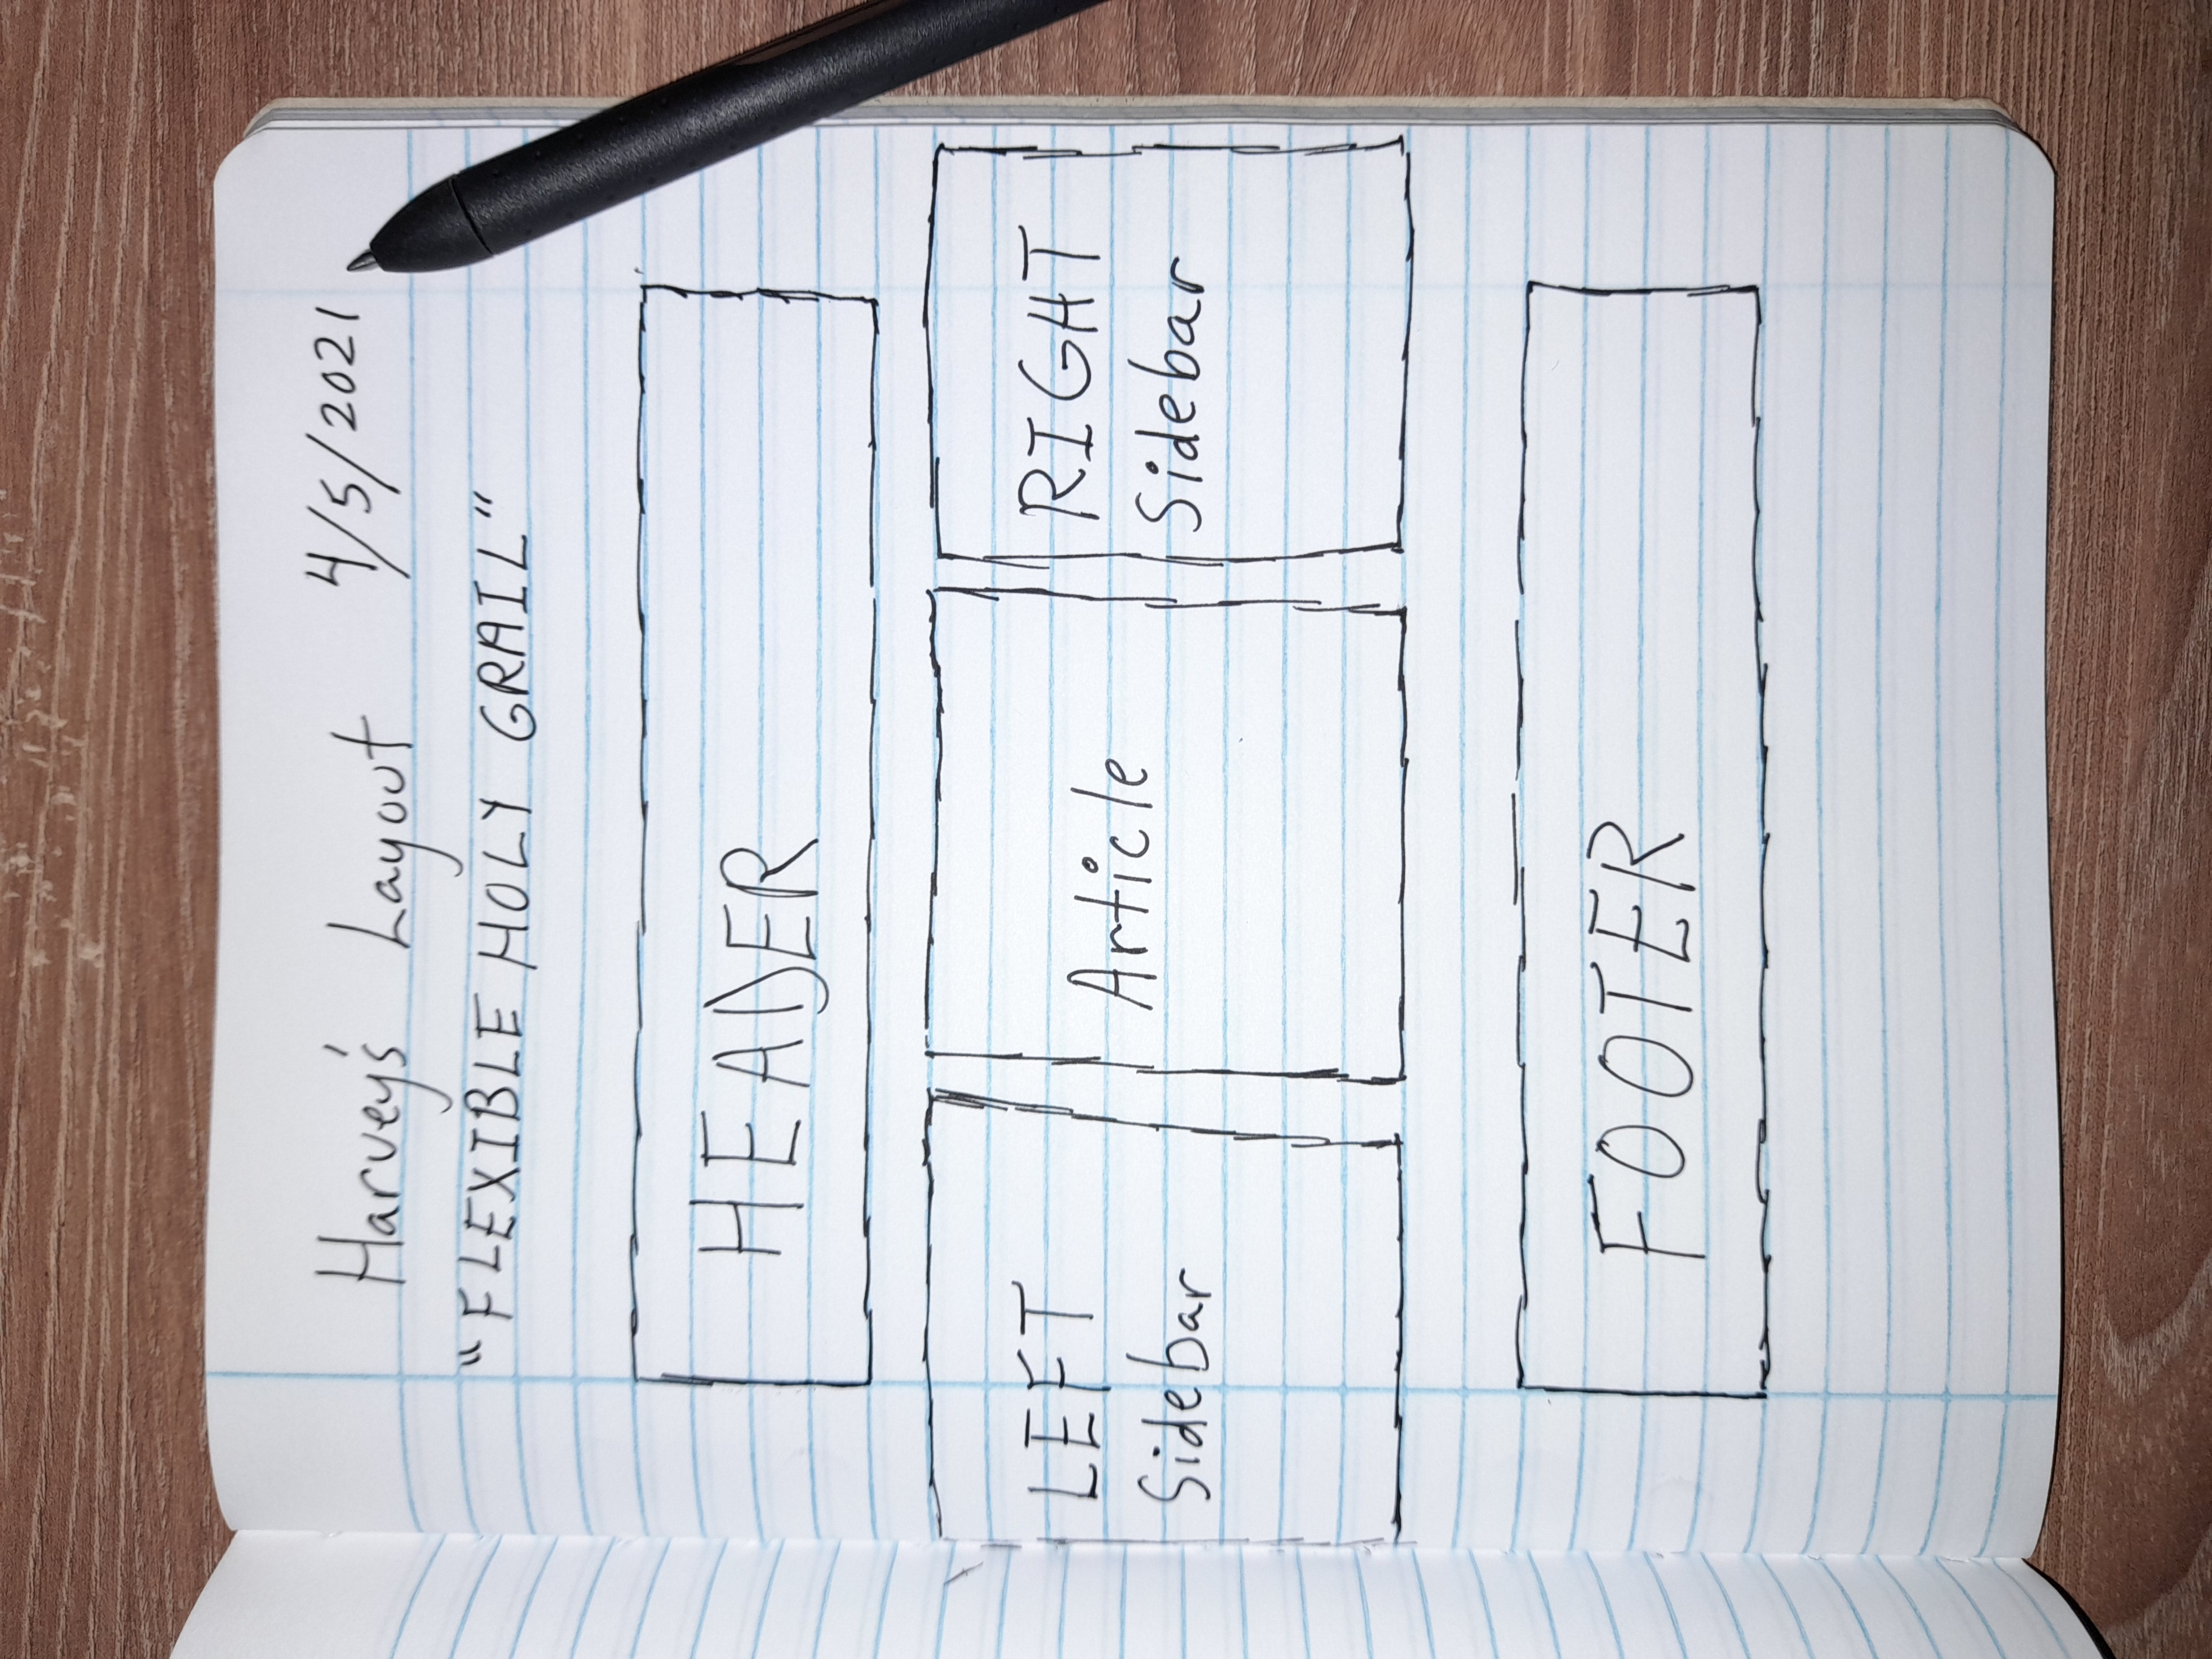 Harvey's Layout 4/5/2021
"FLEXIBLE HOLY GRAIL"
HEADER
LEFT
Sidebar
Article
RIGHT
Sidebar
FOOTER